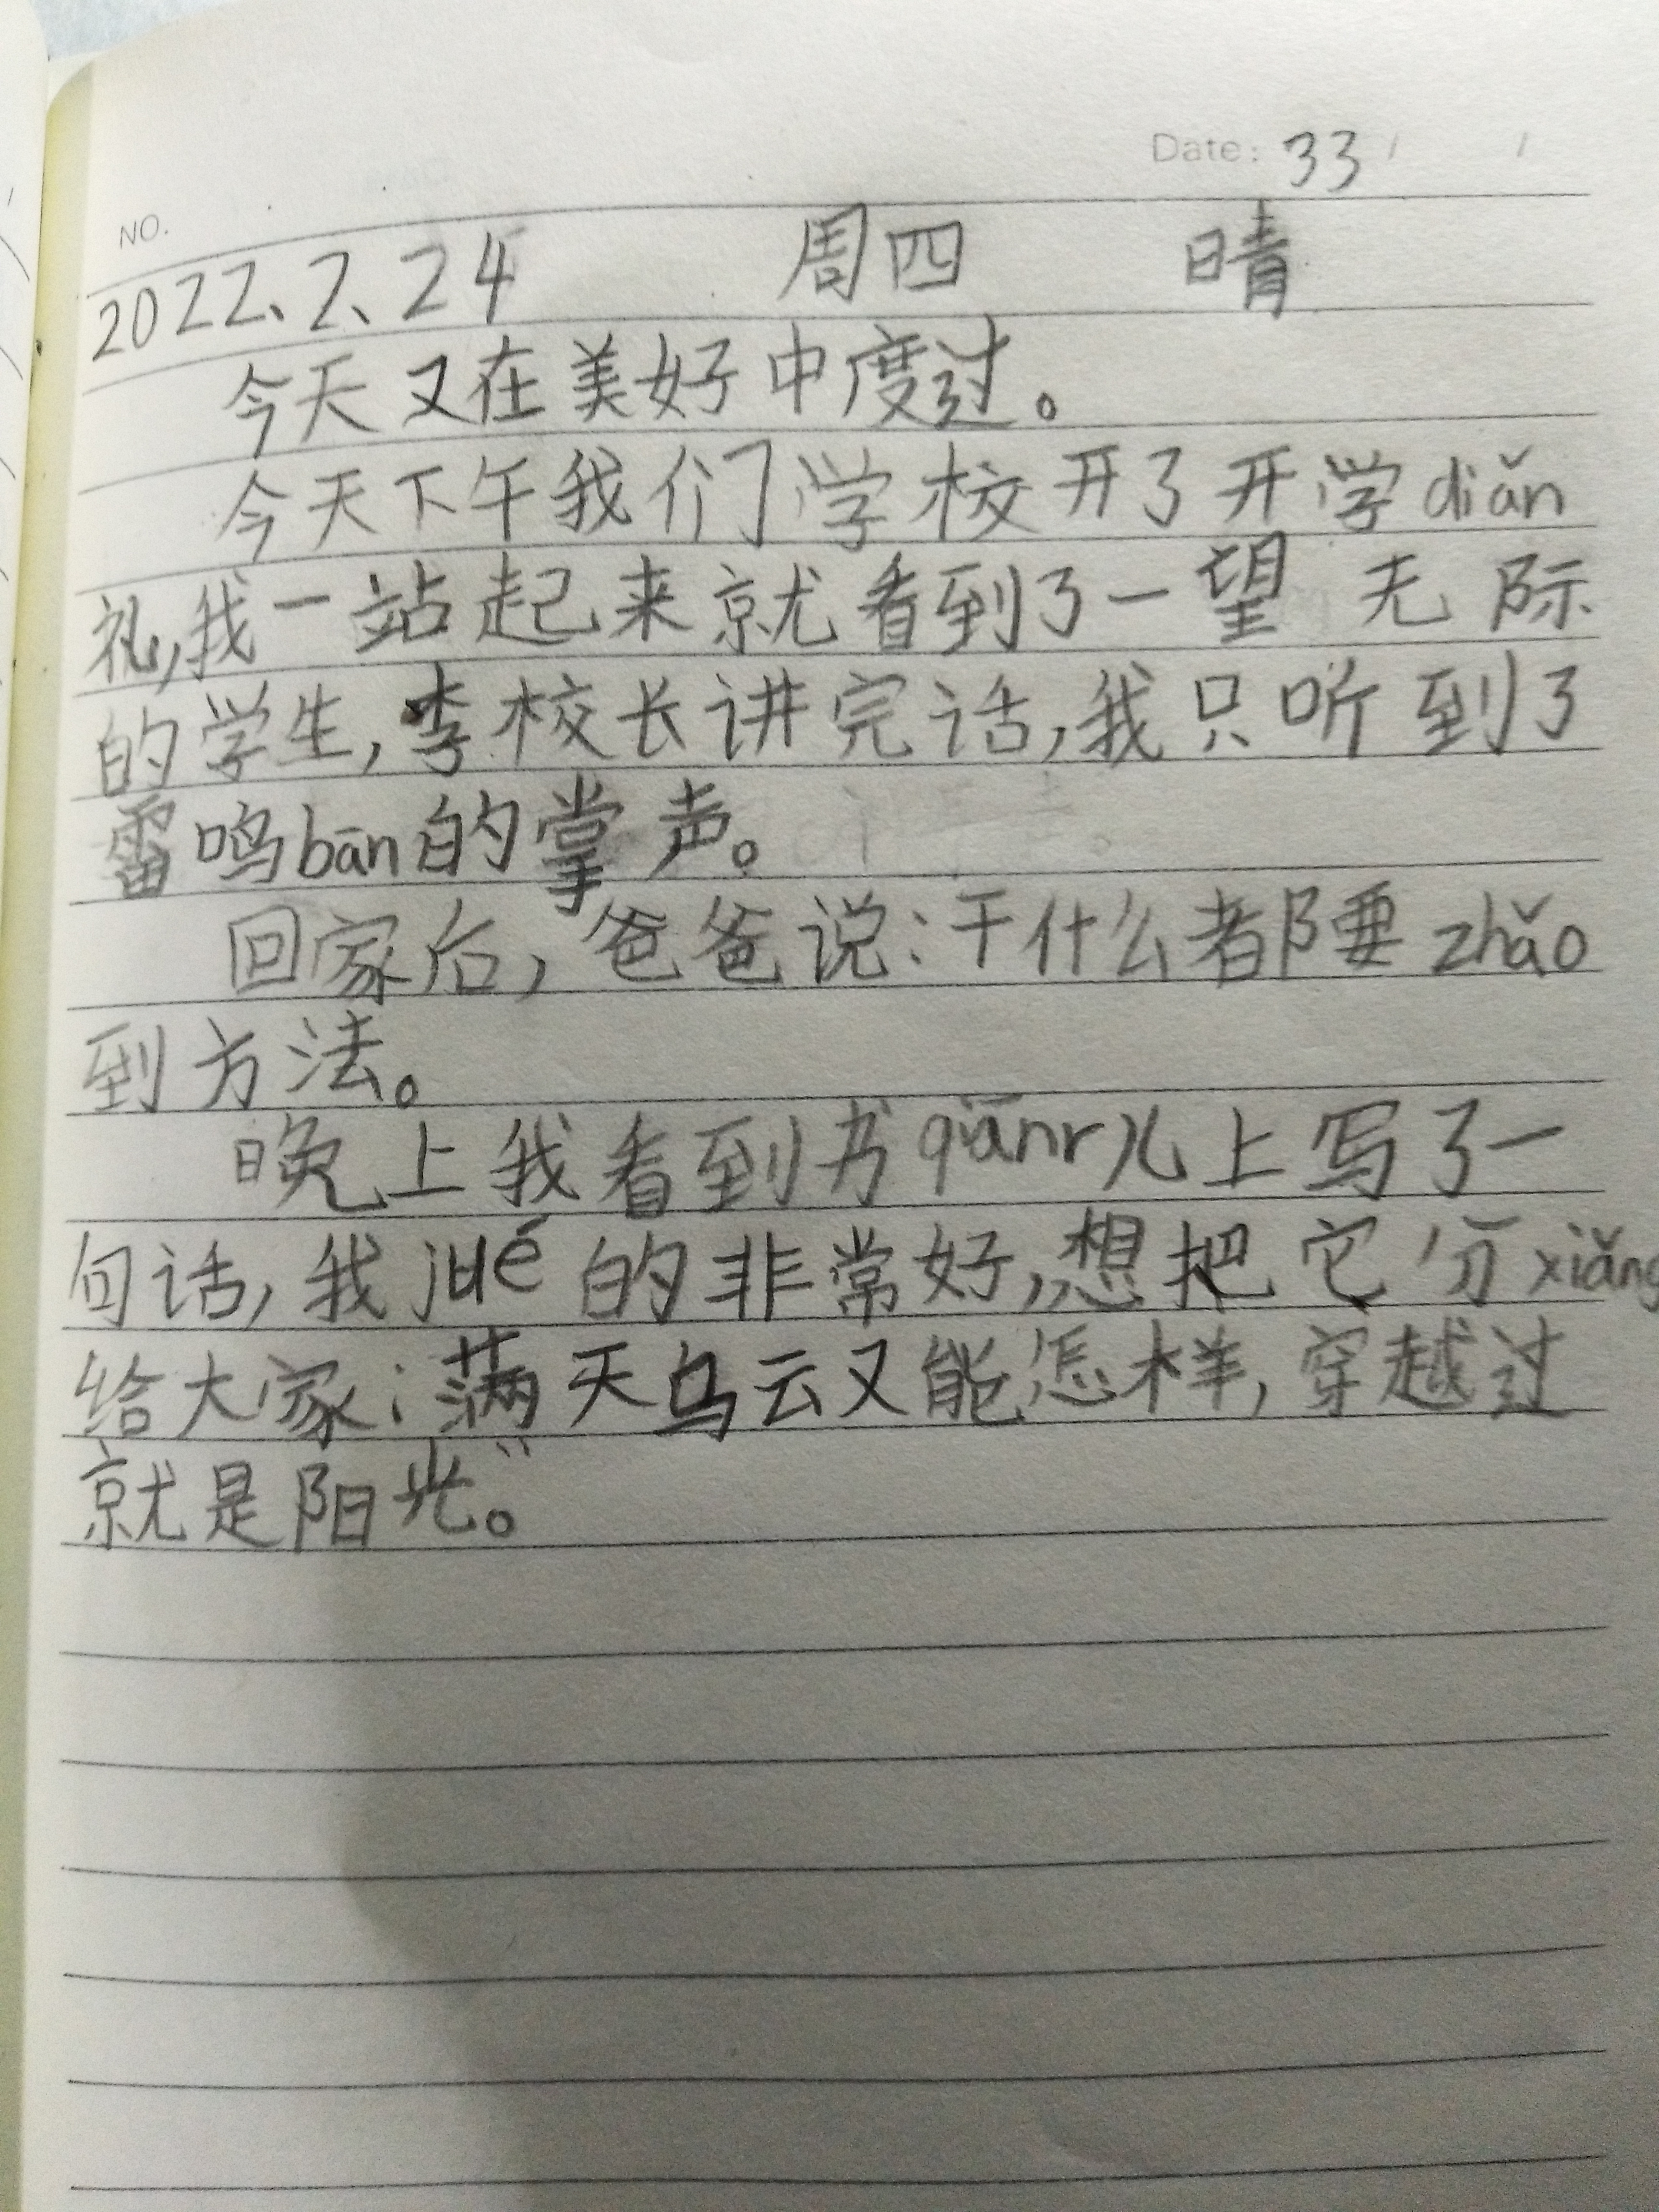 Date: 33 / /
NO.
2022、2、24 周四 晴
今天又在美好中度过。
今天下午我们学校开了开学diǎn
礼,我一站起来就看到了一望无际
的学生,李校长讲完话,我只听到了
雷鸣bān的掌声。
回家后,爸爸说:干什么都要zhǎo
到方法。
晚上我看到书qiānr儿上写了一
句话,我jué的非常好,想把它分xiǎng
给大家:满天乌云又能怎样,穿越过
就是阳光”。